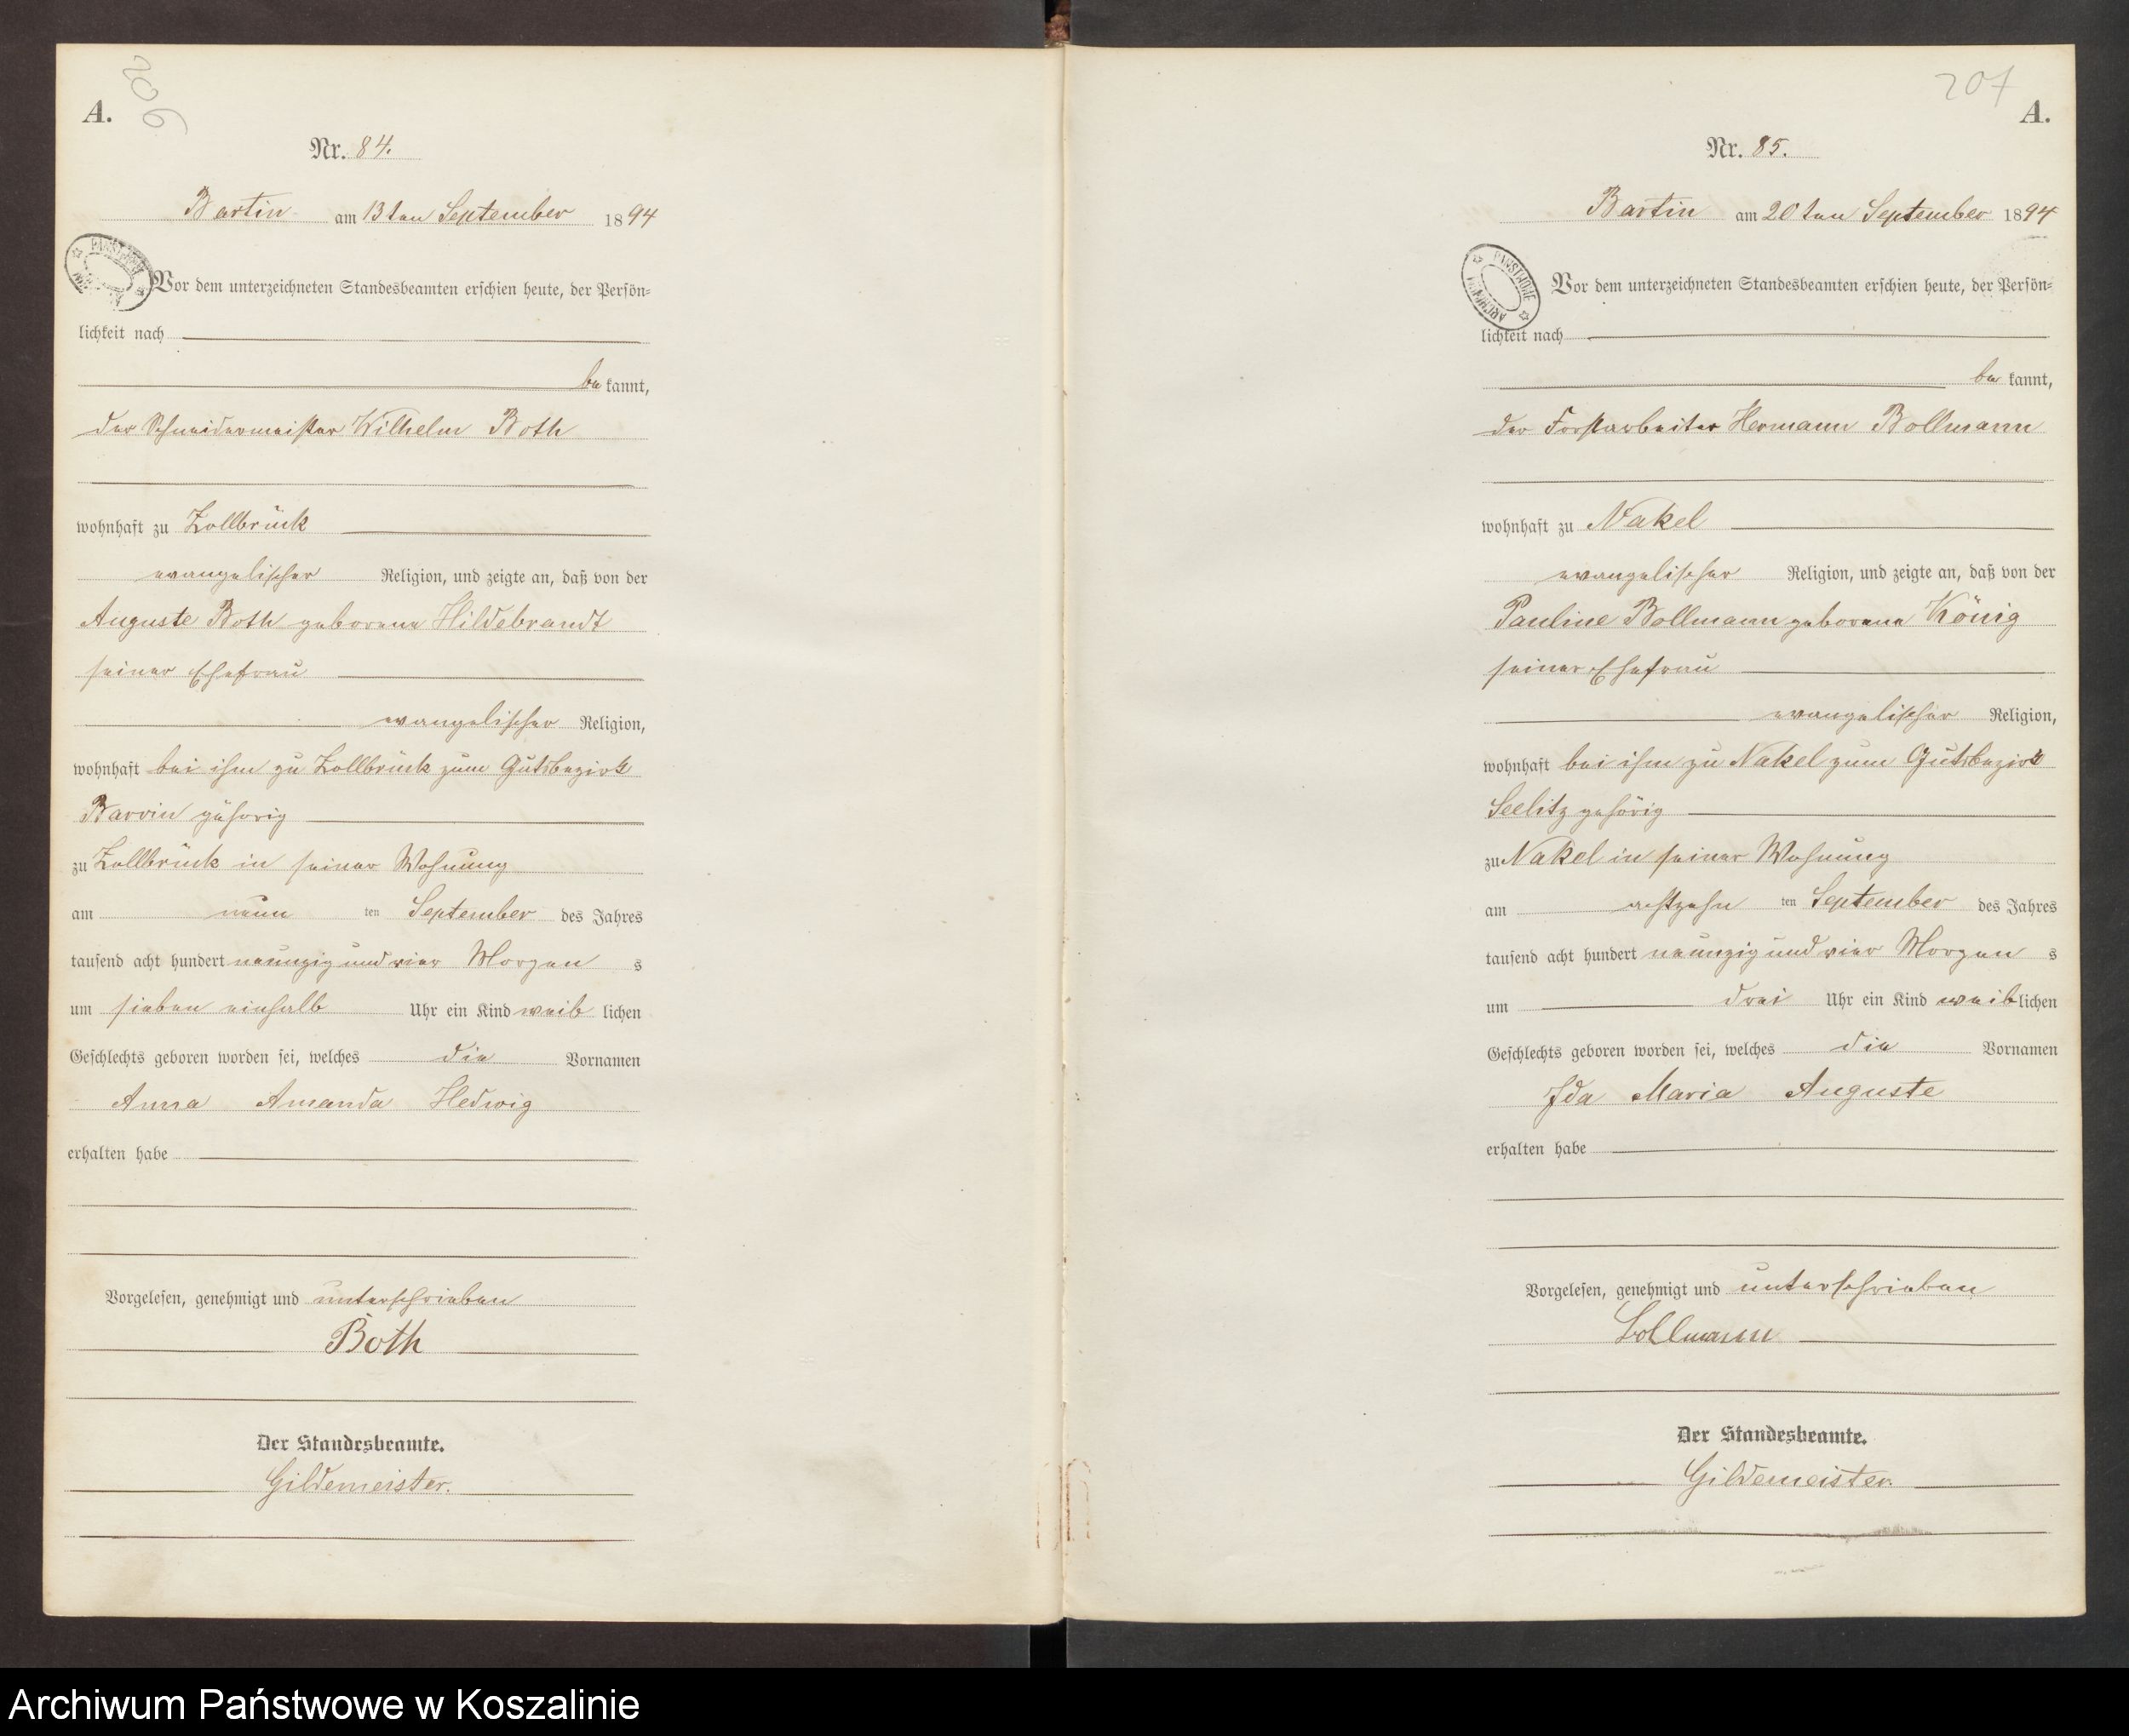 206
A.
Nr. 84.
Bartin am 13ten September 1894
Vor dem unterzeichneten Standesbeamten erschien heute, der Persön-
lichkeit nach
be kannt,
der Schneidermeister Wilhelm Both
wohnhaft zu Zollbrück
evangelischer Religion, und zeigte an, daß von der
Auguste Both geborene Hildebrandt
seiner Ehefrau
evangelischer Religion,
wohnhaft bei ihm zu Zollbrück zum Gutsbezirk
Barvin gehörig
zu Zollbrück in seiner Wohnung
am neun ten September des Jahres
tausend acht hundert neunzig und vier Morgen s
um sieben einhalb Uhr ein Kind weib lichen
Geschlechts geboren worden sei, welches die Vornamen
Anna Amanda Hedwig
erhalten habe
Vorgelesen, genehmigt und unterschrieben
Both
Der Standesbeamte.
Gildemeister.
207
A.
Nr. 85.
Bartin am 20ten September 1894
PANSTWOWE ARCHIWUM
Vor dem unterzeichneten Standesbeamten erschien heute, der Persön-
lichkeit nach
be kannt,
der Forstarbeiter Hermann Bollmann
wohnhaft zu Nakel
evangelischer Religion, und zeigte an, daß von der
Pauline Bollmann geborene König
seiner Ehefrau
evangelischer Religion,
wohnhaft bei ihm zu Nakel zum Gutsbezirk
Seelitz gehörig
zu Nakel in seiner Wohnung
am achtzehn ten September des Jahres
tausend acht hundert neunzig und vier Morgen s
um drei Uhr ein Kind weiblichen
Geschlechts geboren worden sei, welches die Vornamen
Ida Maria Auguste
erhalten habe
Vorgelesen, genehmigt und unterschrieben
Bollmann
Der Standesbeamte.
Gildemeister.
Archiwum Państwowe w Koszalinie